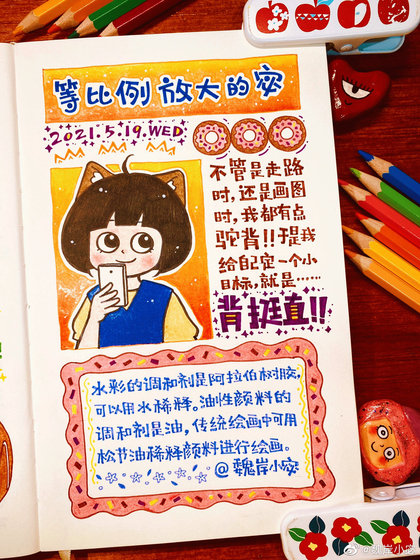 等比例放大的安
2021.5.19.WED
不管是走路
时,还是画图
时,我都有点
驼背!!于是我
给自己定一个小
目标,就是……
背挺直!!
水彩的调和剂是阿拉伯树胶,
可以用水稀释。油性颜料的
调和剂是油,传统绘画中可用
松节油稀释颜料进行绘画。
@魏岸小安